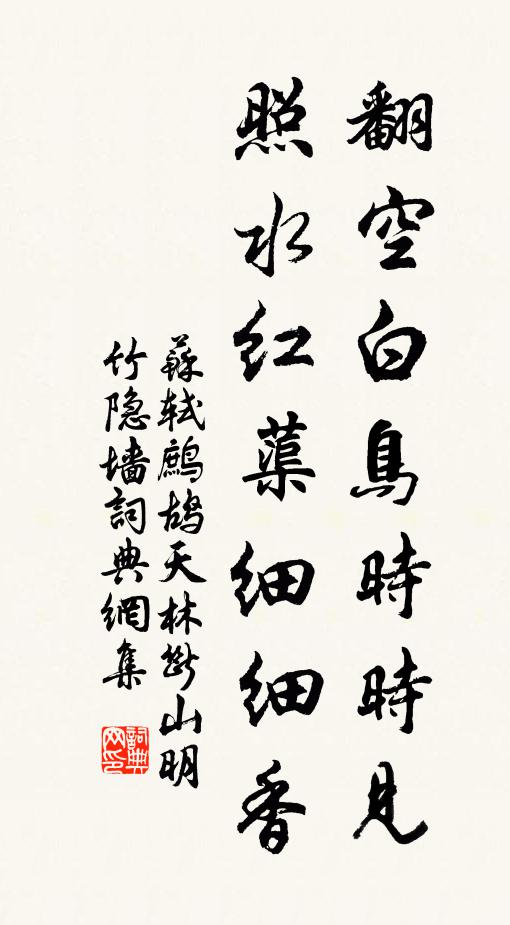 翻空白鳥時時見
照水紅蕖細細香
蘇軾鷓鴣天林斷山明
竹隐墻詞典網集
詞典网印